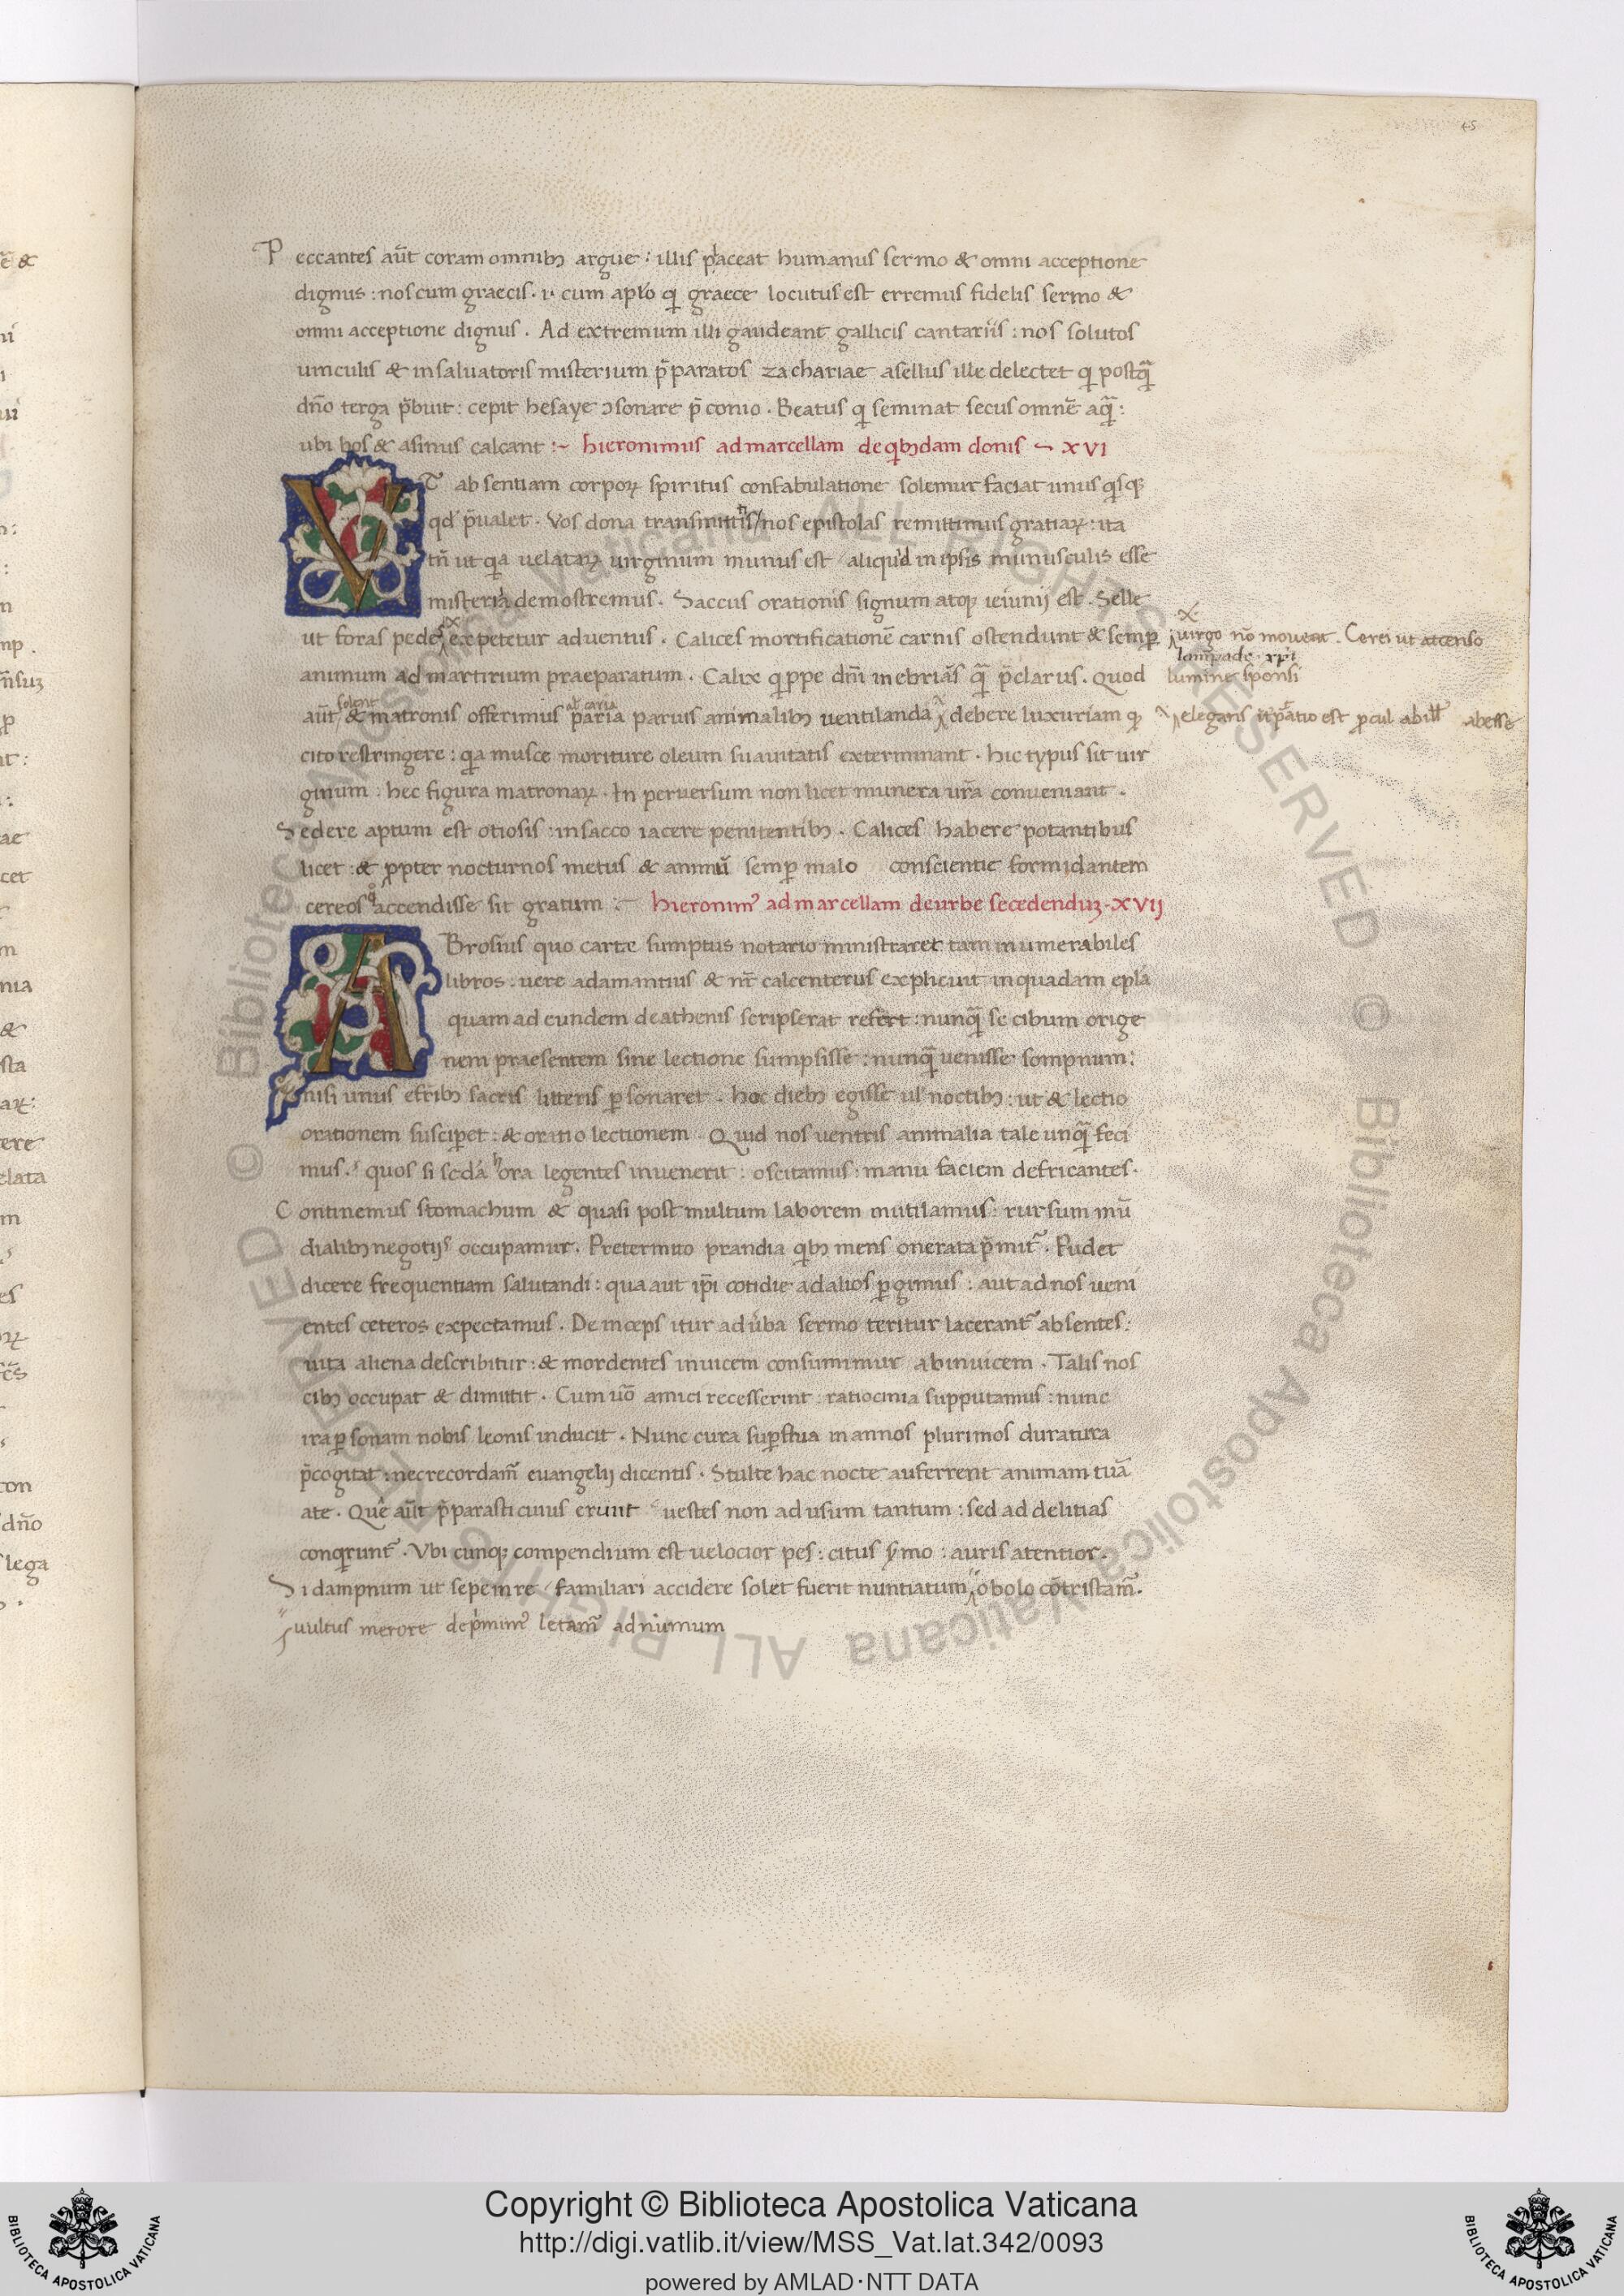 45
Peccantes aut̄ coram omnibꝫ argue : illis placeat humanus sermo & omni acceptione
dignus : nos cum graecis . i . cum aplo q̇ graece locutus est erremus fidelis sermo &
omni acceptione dignus . Ad extremum illi gaudeant gallicis cantariis : nos solutos
uinculis & in saluatoris misterium p̄paratos zachariae asellus ille delectet q̇ postq̄
dn̄o terga p̄buit : cepit hesaye ɔsonare p̄conio . Beatus q̇ seminat secus omnē aq̄ :
ubi bos & asinus calcant :~ hieronimus ad marcellam de qibꝫdam donis ~ XVI
VT absentiam corporꝝ spiritus confabulatione solemur faciat unus qisqꝫ
qd̄ p̄ualet . Vos dona transmittitis / nos epistolas remittimus gratiaꝝ : ita
tn̄ ut qia uelataꝝ uirginum munus est / aliquid in ipsis munusculis esse
misteria demostremus . Saccus orationis signum atqꝫ ieiunij est . Selle
ut foras pedes expetetur aduentus . Calices mortificationē carnis ostendunt & semꝑ uirgo nō moueat . Cerei ut accenso
lampade xp̄i
lumine sponsi
animum ad martirium praeparatum . Calix qippe dn̄i inebrians q̄ p̄clarus . Quod
aut̄ & matronis offerimus paria paruis animalibꝫ uentilanda debere luxuriam qꝫ elegans abesse
solent
cito restringere : qia musce moriture oleum suauitatis exterminant . hic typus sit uir
ginum : hec figura matronaꝝ . In peruersum non licet munera ur̄a conueniant .
Sedere aptum est otiosis : in sacco iacere penitentibꝫ . Calices habere potantibus
licet : & ꝓpter nocturnos metus & animū semꝑ malo conscientie formidantem
cereos accendisse sit gratum :~ hieronimꝰ ad marcellam de urbe secedenduꝫ . XVIj
ABrosius quo carte sumptus notario ministraret tam innumerabiles
libros : uere adamantius & nr̄ calcenterus explicuit in quadam epl̄a
quam ad eundem de athenis scripserat refert : nunq̄ se cibum orige
nem praesentem sine lectione sumpsisse : nunq̄ uenisse sompnum :
nisi unus e fribꝫ sacris litteris ꝑsonaret . hoc diebꝫ egisse ul̄ noctibꝫ : ut & lectio
orationem susciperet : & oratio lectionem . Quid nos uentris animalia tale unq̄ feci
mus . quos si scd̄a hora legentes inuenerit : oscitamus : manu faciem defricantes .
Continemus stomachum & quasi post multum laborem mutilamus : rursum mū
dialibꝫ negotijs occupamur . Pretermitto prandia qibꝫ mens onerata p̄mit᷑ . Pudet
dicere frequentiam salutandi : qua aut ip̄i cotidie ad alios ꝑgimus : aut ad nos ueni
entes ceteros expectamus . Deinceps itur ad ùba sermo teritur lacerant᷑ absentes :
uita aliena describitur : & mordentes inuicem consumimur abinuicem . Talis nos
cibꝫ occupat & dimittit . Cum uō amici recesserint : ratiocinia supputamus : nunc
ira ꝑsonam nobis leonis inducit . Nunc cura suꝑflua in annos plurimos duratura
p̄cogitat : nec recordam᷑ euangelij dicentis . Stulte hac nocte auferrent animam tuā
a te . Que aut̄ p̄parasti cuius erunt uestes non ad usum tantum : sed ad delitias
conqirunt᷑ . Vbi cunqꝫ compendium est uelocior pes : citus sermo : auris atentior .
Si dampnum ut sepe in re familiari accidere solet fuerit nuntiatum obolo cōtristam᷑ .
uultus merore depimimꝰ letam᷑ ad numum
© Biblioteca Apostolica Vaticana ALL RIGHTS RESERVED © Biblioteca Apostolica Vaticana ALL RIGHTS RESERVED
BIBLIOTECA APOSTOLICA VATICANA
Copyright © Biblioteca Apostolica Vaticana
http://digi.vatlib.it/view/MSS_Vat.lat.342/0093
powered by AMLAD·NTT DATA
BIBLIOTECA APOSTOLICA VATICANA